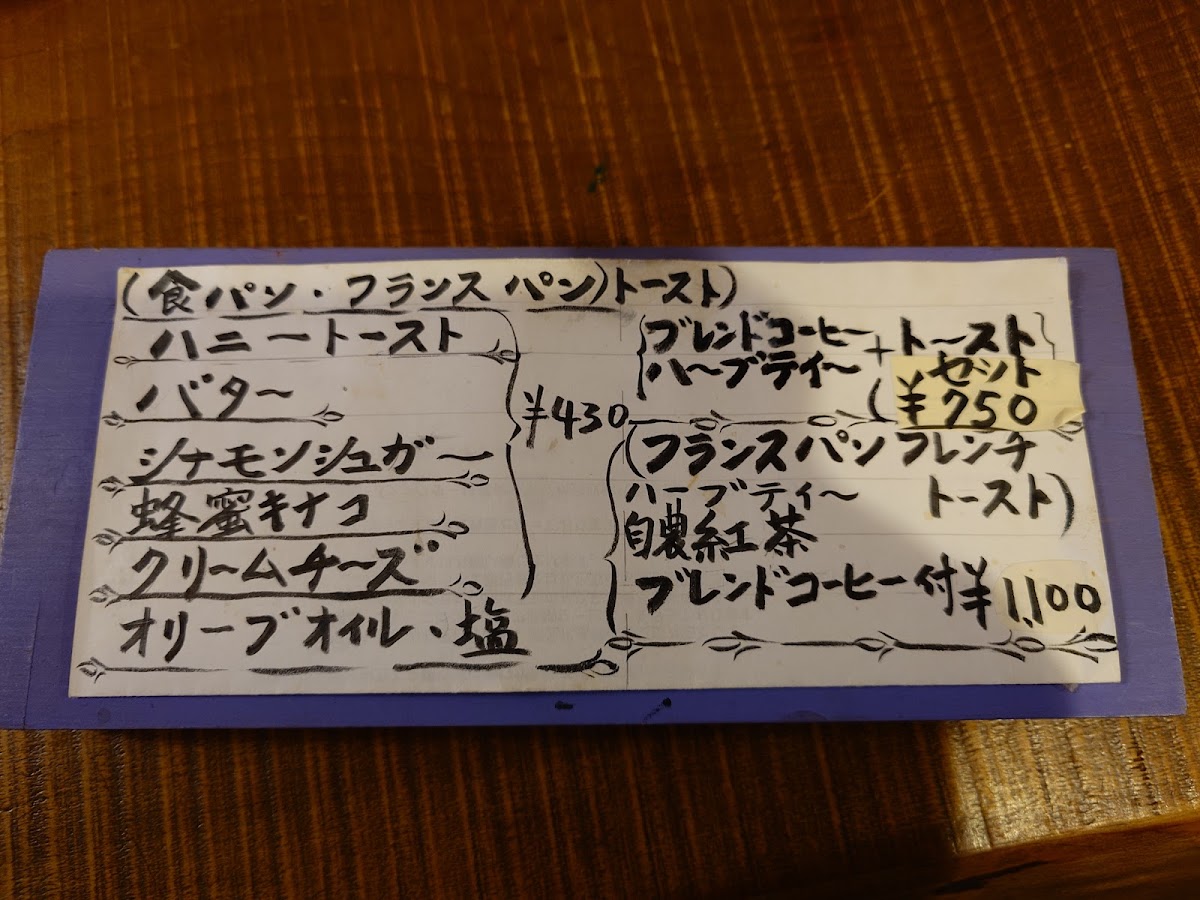 (食パン・フランスパン)トースト)
ハニートースト
バター
シナモンシュガー
蜂蜜キナコ
クリームチーズ
オリーブオイル・塩
¥430
ブレンドコーヒー
ハーブティー + トースト
セット
(¥750
(フランスパンフレンチ
トースト)
ハーブティー
自農紅茶
ブレンドコーヒー付¥1,100